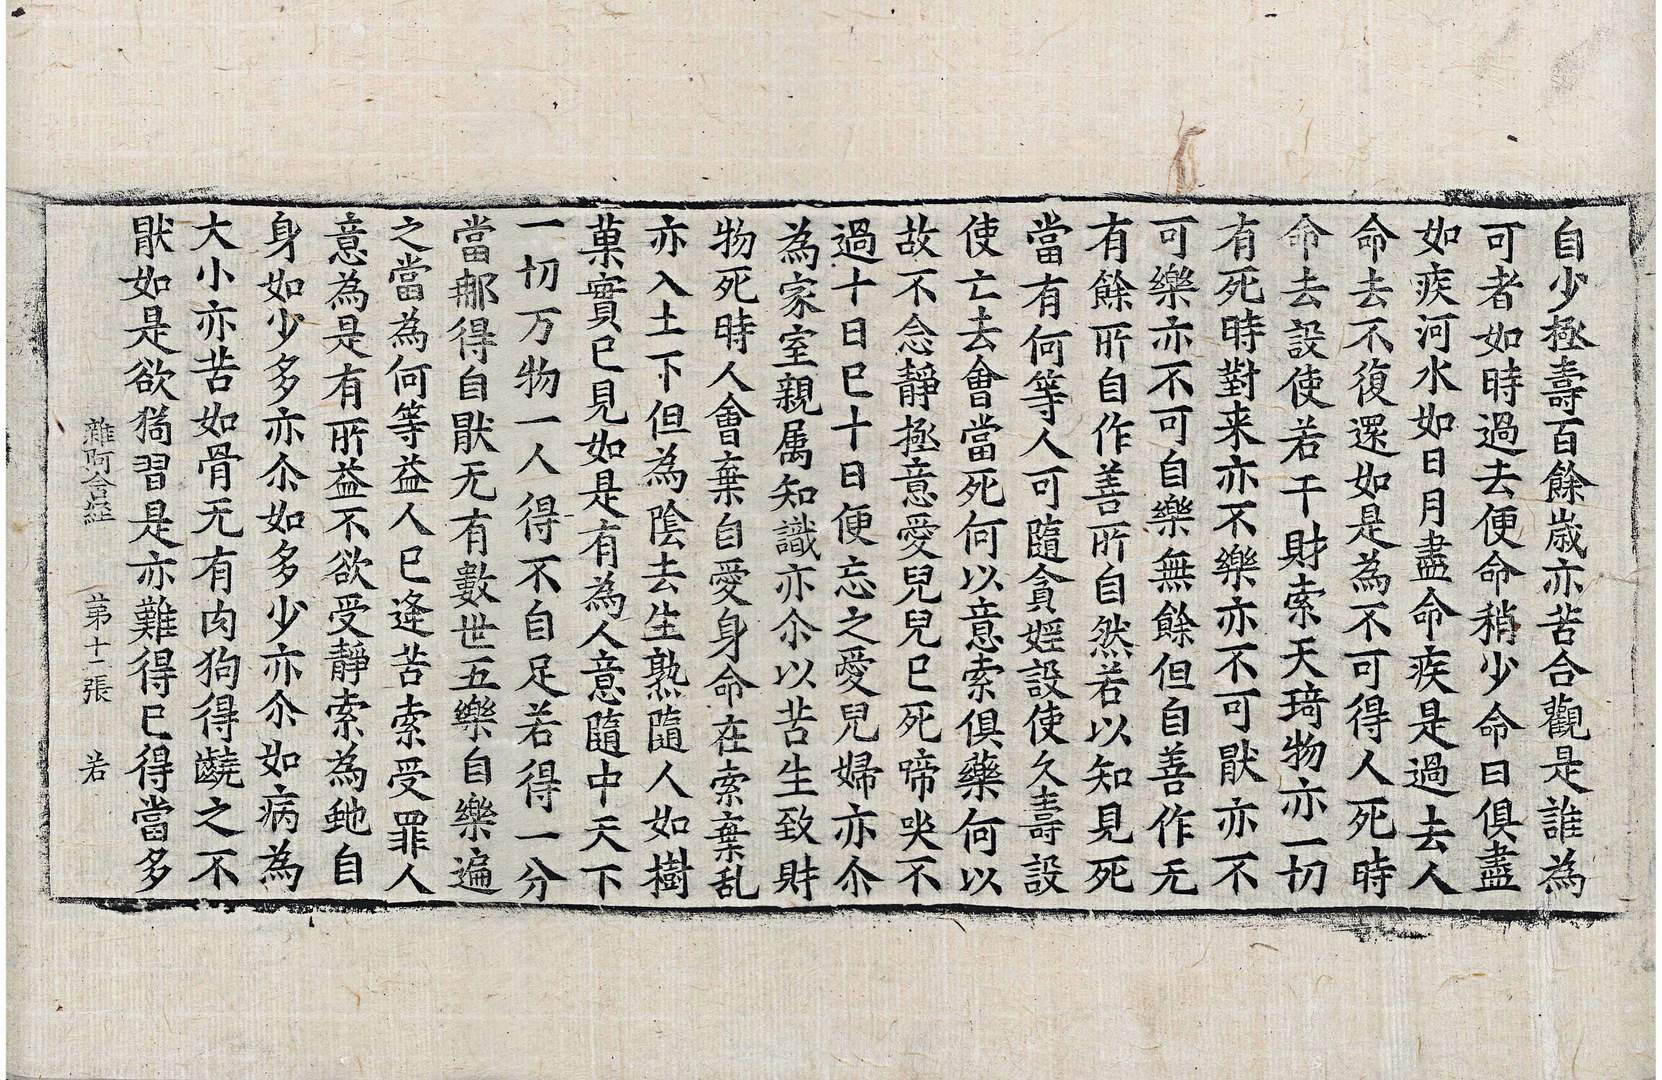 自少極壽百餘歲亦苦合觀是誰為
可者如時過去便命稍少命日俱盡
如疾河水如日月盡命疾是過去人
命去不復還如是為不可得人死時
命去設使若干財索天琦物亦一切
有死時對来亦不樂亦不可猒亦不
可樂亦不可自樂無餘但自善作无
有餘所自作善所自然若以知見死
當有何等人可隨貪婬設使久壽設
使亡去會當死何以意索俱藥何以
故不念靜極意愛兒兒已死啼哭不
過十日已十日便忘之愛兒婦亦尒
為家室親属知識亦尒以苦生致財
物死時人會棄自愛身命在索棄乱
亦入土下但為陰去生熟隨人如樹
菓實已見如是有為人意隨中天下
一切万物一人得不自足若得一分
當那得自猒无有數世五樂自樂遍
之當為何等益人已逢苦索受罪人
意為是有所益不欲受靜索為虵自
身如少多亦尒如多少亦尒如病為
大小亦苦如骨无有肉狗得齩之不
猒如是欲猗習是亦難得已得當多
雜阿含經 第十一張 若